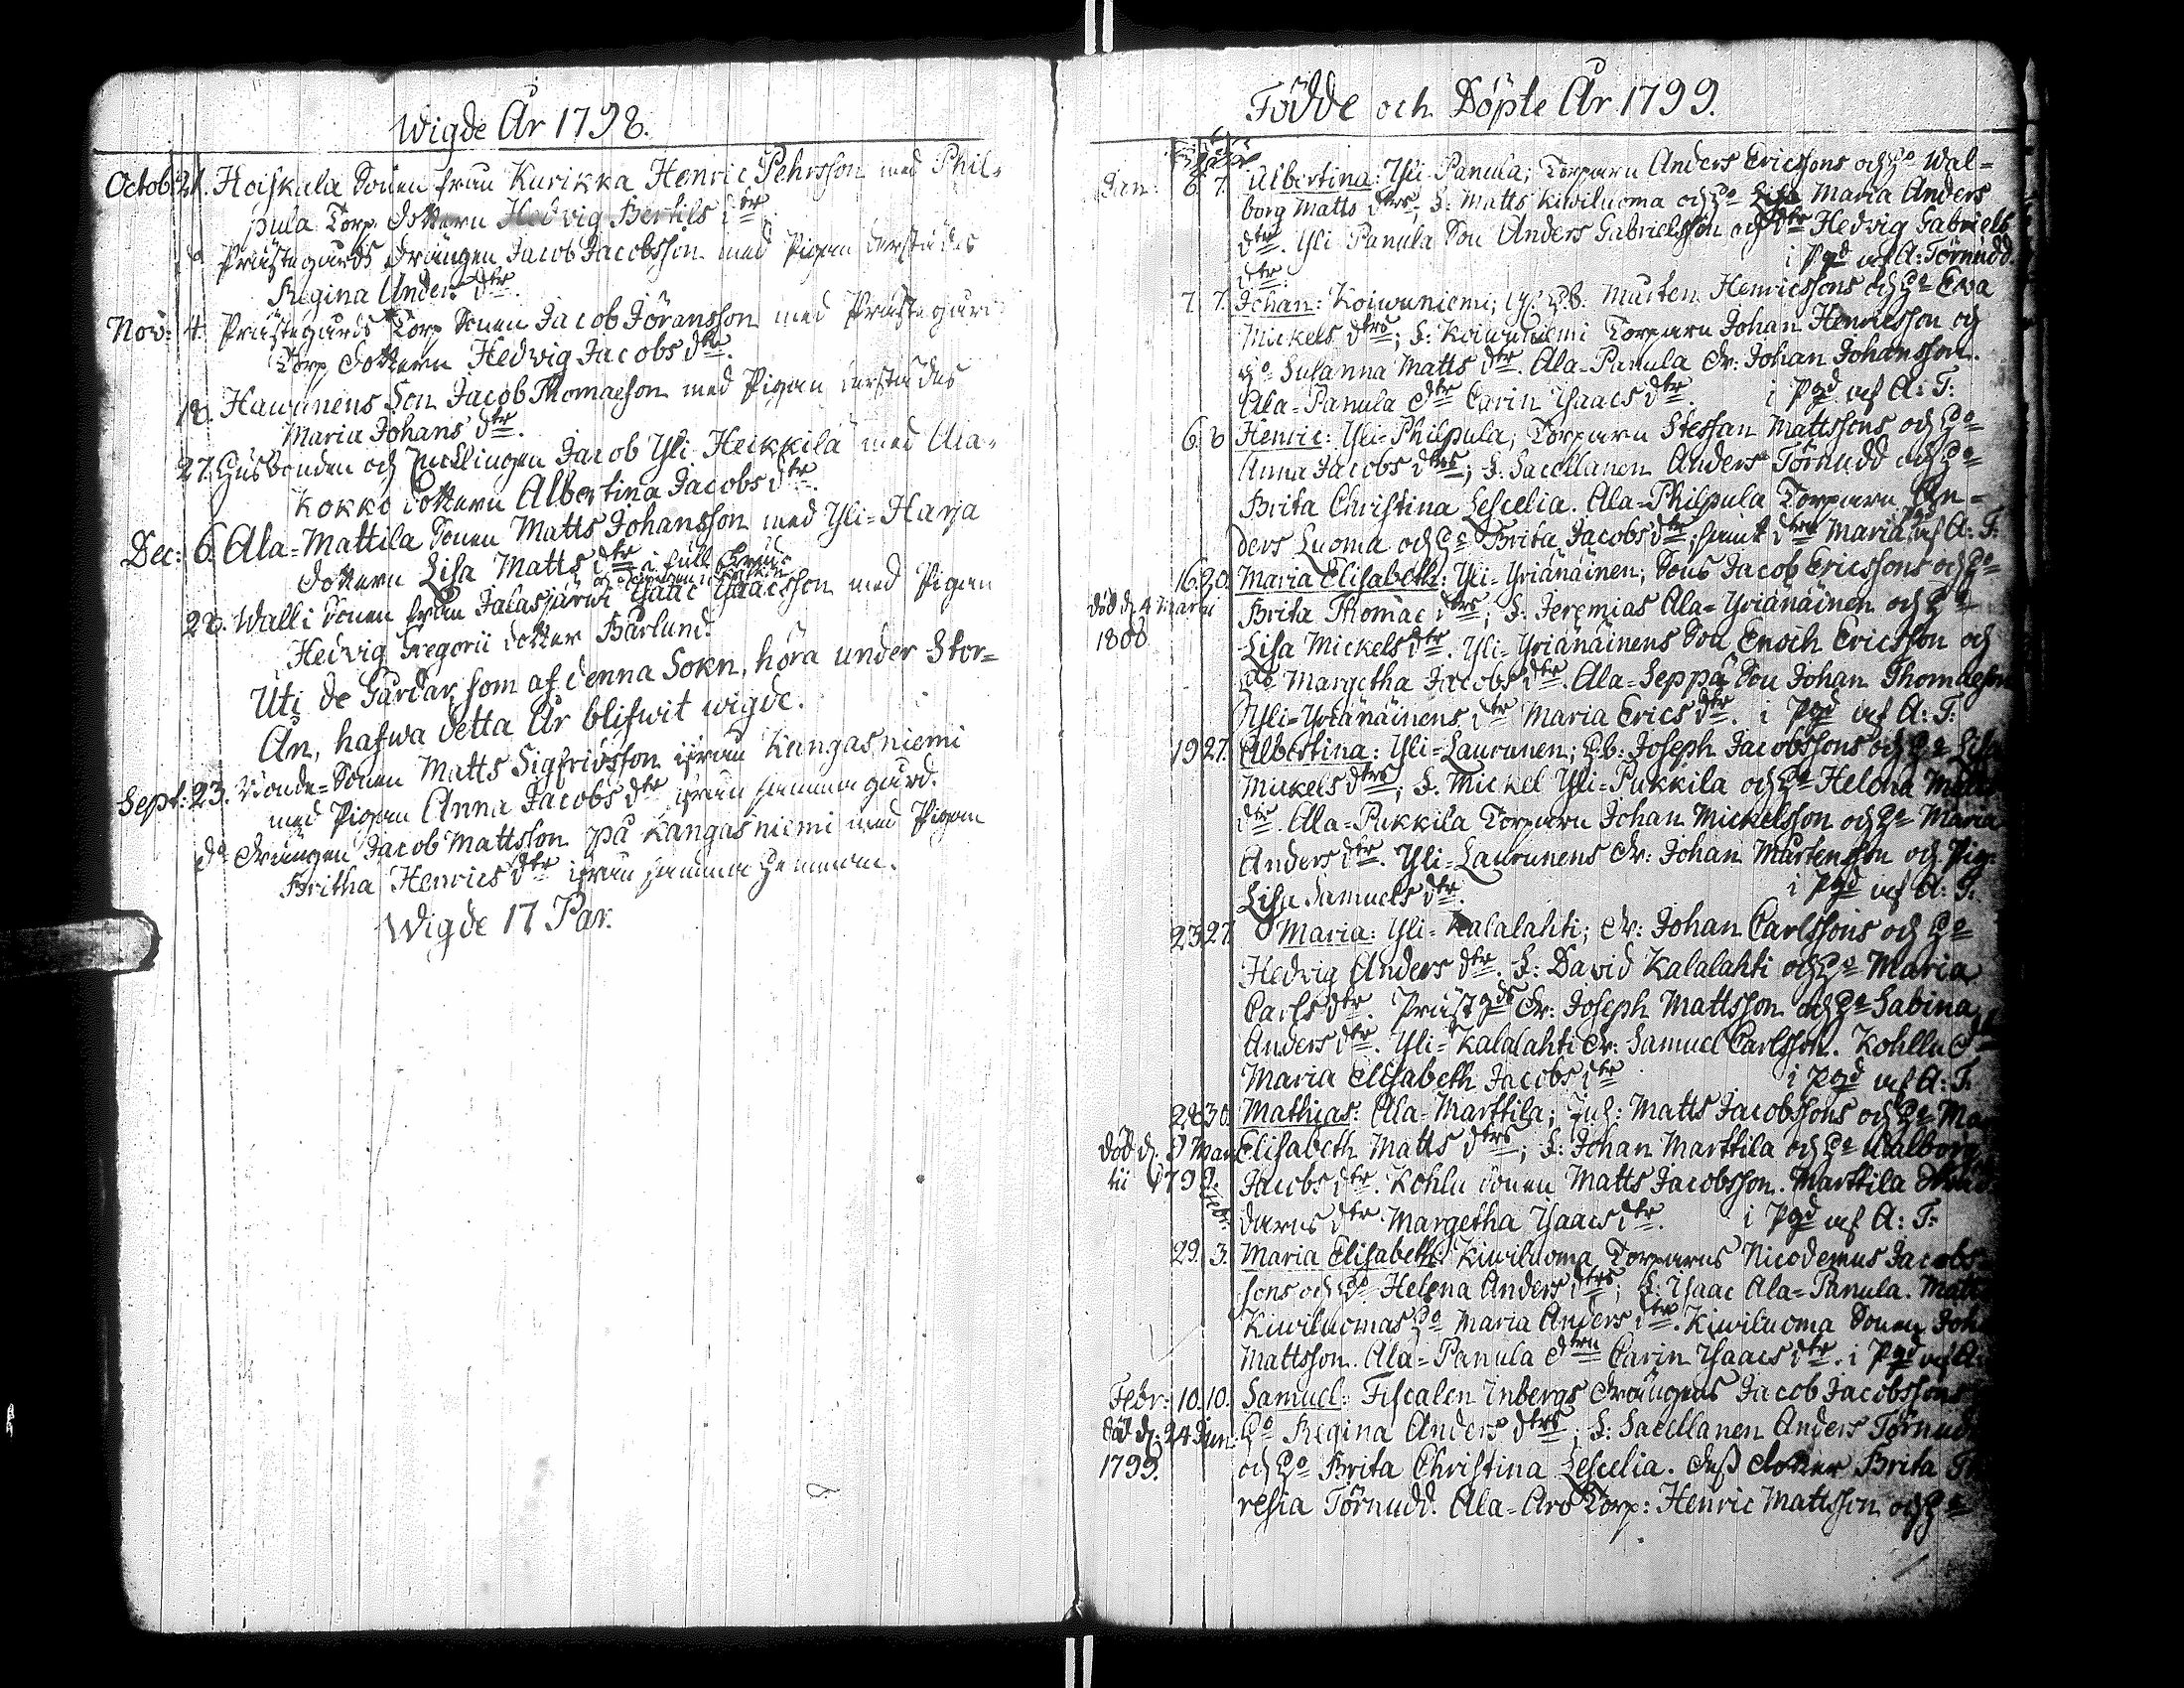 Wigde År 1798.
Octob: 21. Hoiskala Sonen från Kurikka Henric Pehrsson med Phil-
pula Torp dottern Hedvig Bertils dtr.
do Prästegårds drängen Jacob Jacobsson med Pigan derstädes
Regina Anders dtr.
Nov: 4. Prästegårds Torp Sonen Jacob Jöransson med Prästegårds
Torp dottern Hedvig Jacobs dtr.
18. Hawunens Son Jacob Thomasson med Pigan derstädes
Maria Johans dtr.
27. Husbonden och Enklingen Jacob Yli Heikkilä med Ala-
Kokko dottern Albertina Jacobs dtr.
Dec: 6. Ala-Mattila Sonen Matts Johansson med Yli-Harja
dottern Lisa Matts dtr i full Brud
28. Walli Sonen från Jalasjärwi Isaac Isaacsson med Pigan
Hedvig Gregorii dotter Barlund.
Uti de Gårdar, som af denna Sokn, höra under Stor-
Ån, hafwa detta År blifwit wigde.
Sept: 23. Bonde-Sonen Matts Sigfridsson ifrån Kangasniemi
med Pigan Anna Jacobs dtr ifrån samma gård.
do drängen Jacob Mattsson på Kangasniemi med Pigan
Britha Henrics dtr ifrån samma Hemman.
Wigde 17 Par.
Födde och Döpte År 1799.
Jan: 6. 7. Albertina: Yli-Panula; Torparn Anders Ericssons och Ho Wal-
borg Matts dtrs; F. Matts Kiwiluoma och Ho Lisa Maria Anders
dtr. Yli Panula Son Anders Gabrielsson och dtr Hedvig Gabriels
dtr. i Pgd af A: Törnudd.
7. 7. Johan: Koiwuniemi; Mårten Henricssons och Ho Eva
Mickels dtrs; F. Koiwuniemi Torparn Johan Henricsson och
Ho Susanna Matts dtr. Ala-Panula Dr: Johan Johansson.
Ala-Panula dtr Carin Isaacs dtr. i Pgd af A: T:
6. 8 Henric: Yli-Philpula; Torparn Steffan Mattssons och Ho
Anna Jacobs dtrs; F. Sacellanen Anders Törnudd och Ho
Brita Christina Lescelia. Ala-Philpula Torparn An-
ders Luoma och Ho Brita Jacobs dtr, samt dtrn Maria. Pgd af A: T:
16. 20. Maria Elisabeth: Yli-Yriänäinen; Sons Jacob Ericssons och Ho
död d. 4 Martii Brita Thomae dtrs; F. Jeremias Ala-Yriänäinen och Ho
1800 Lisa Mickels dtr. Yli-Yriänäinens Son Enoch Ericsson och
Ho Margetha Jacobs dtr. Ala-Seppä Son Johan Thomasson
Yli-Yriänäinens dtr Maria Erics dtr. i Pgd af A: T:
19 27. Albertina: Yli-Laurunen; Joseph Jacobssons och Ho Lisa
Mickels dtrs; F. Mickel Yli-Pukkila och Ho Helena Matts
dtr. Ala-Pukkila Torparn Johan Mickelsson och Ho Maria
Anders dtr. Yli-Laurunens Dr: Johan Mårtensson och Pig:
Lisa Samuels dtr. i Pgd af A: T:
23 27. Maria: Yli-Kalalahti; Dr: Johan Carlssons och Ho
Hedvig Anders dtr. F: David Kalalahti och Ho Maria
Carls dtr. Prästgds Dr: Joseph Mattsson och Ho Sabina
Anders dtr. Yli-Kalalahti Dr: Samuel Carlsson. Kohlu dtr
Maria Elisabeth Jacobs dtr i Pgd af A: T:
28 30. Mathias: Ala-Marttila; Inh: Matts Jacobssons och Ho
död d. Mar- Elisabeth Matts dtrs; F: Johan Marttila och Ho Walborg
tii 1799. Jacobs dtr. Kohlu Sonen Matts Jacobsson. Marttila
Febr: dtr Margetha Isaacs dtr. i Pgd af A: T:
29. 3. Maria Elisabeth: Kiwiluoma Torparns Nicodemus Jacobs-
sons och Ho Helena Anders dtrs; F. Isaac Ala-Panula. Matts
Kiwiluomas Ho Maria Anders dtr. Kiwiluoma Sonen Joh
Mattsson. Ala-Panula dtrn Carin Isaacs dtr. i Pgd af A:
Febr: 10. 10. Samuel: Fiscalen Inbergs drängens Jacob Jacobssons
död d. 24 Jun: Ho Regina Anders dtrs; F: Sacellanen Anders Törnudd
1799. och Ho Brita Christina Lescelia. dess dotter Brita The
resia Törnudd. Ala-Aro Torp: Henric Mattsson och Ho